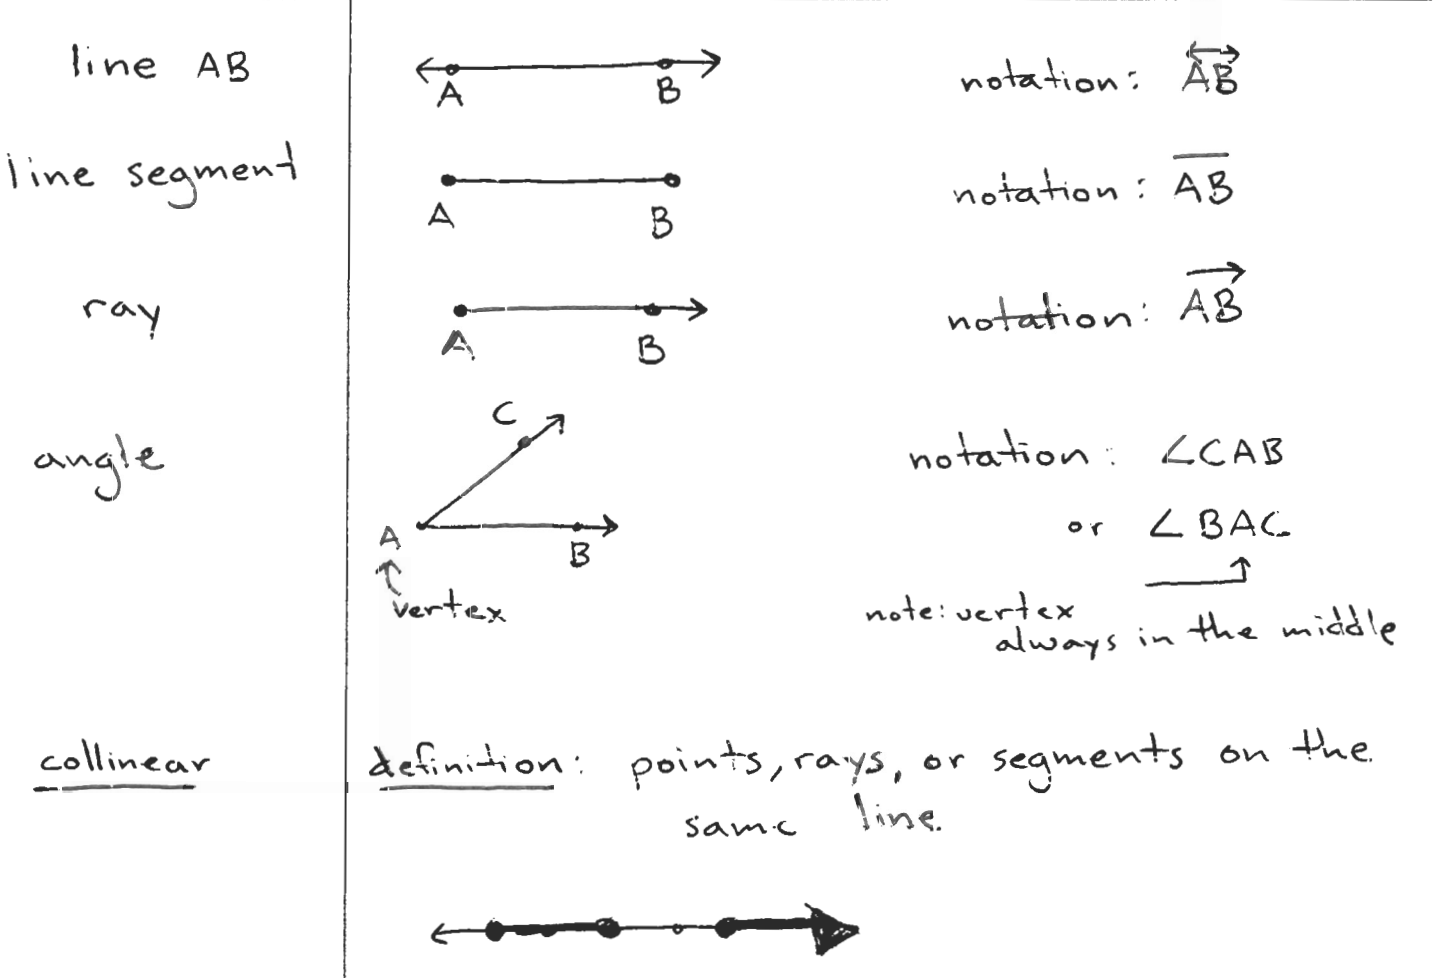 line AB
A B
notation: A͡B
line segment
A B
notation: A̅B̅
ray
A B
notation: AB⃗
angle
C
A B
vertex
notation: ∠CAB
or ∠BAC
note: vertex
always in the middle
collinear
definition: points, rays, or segments on the
same line.